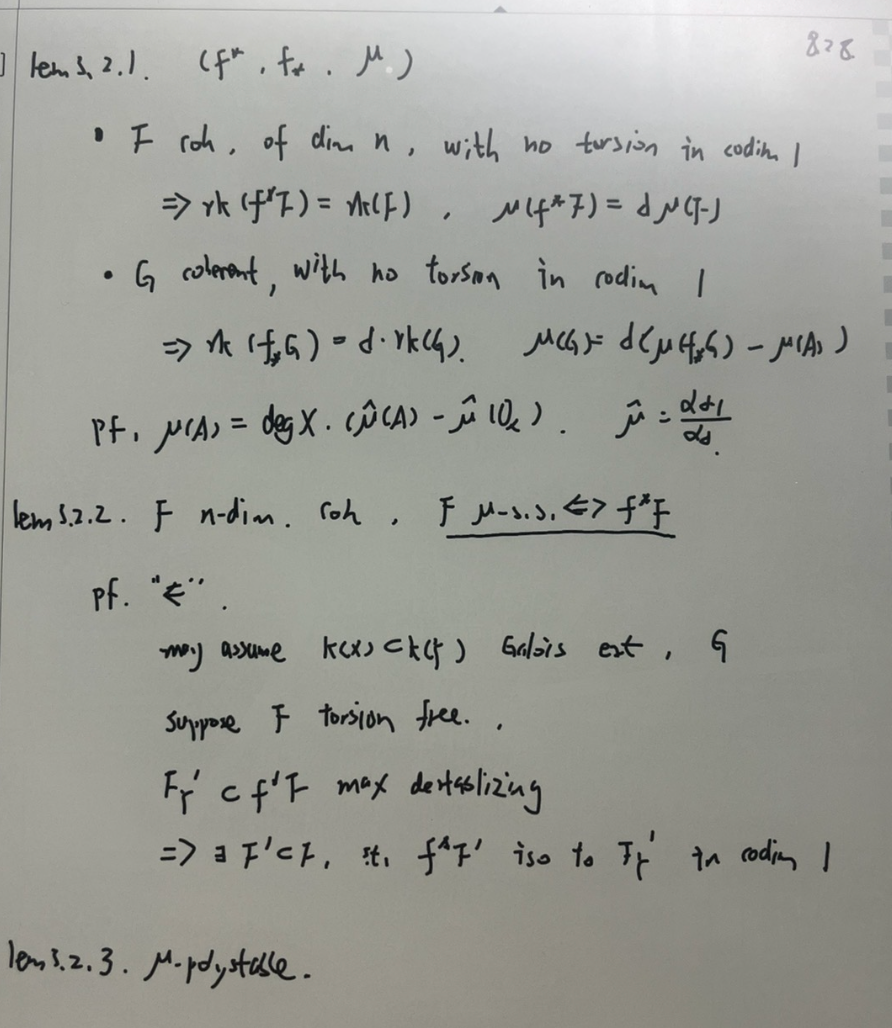 828
] lem 3.2.1. (f*, f_*, μ.)
• F coh. of dim n, with no torsion in codim 1
⇒ rk(f*F) = rk(F), μ(f*F) = dμ(F)
• G coherent, with no torsion in codim 1
⇒ rk(f_*G) = d·rk(G). μ(G) = d(μ(f_*G) - μ(A))
pf. μ(A) = deg X. (μ̂(A) - μ̂(O_x). μ̂ = αd-1/αd.
lem 3.2.2. F n-dim. coh, F μ-s.s. ⇔ f*F
pf. "⇐".
may assume k(x) ⊂ k(Y) Galois ext, G
suppose F torsion free.
F_Y' ⊂ f*F max destablizing
⇒ ∃ F' ⊂ F, st. f*F' iso to F_Y' in codim 1
lem 3.2.3. μ-polystable.